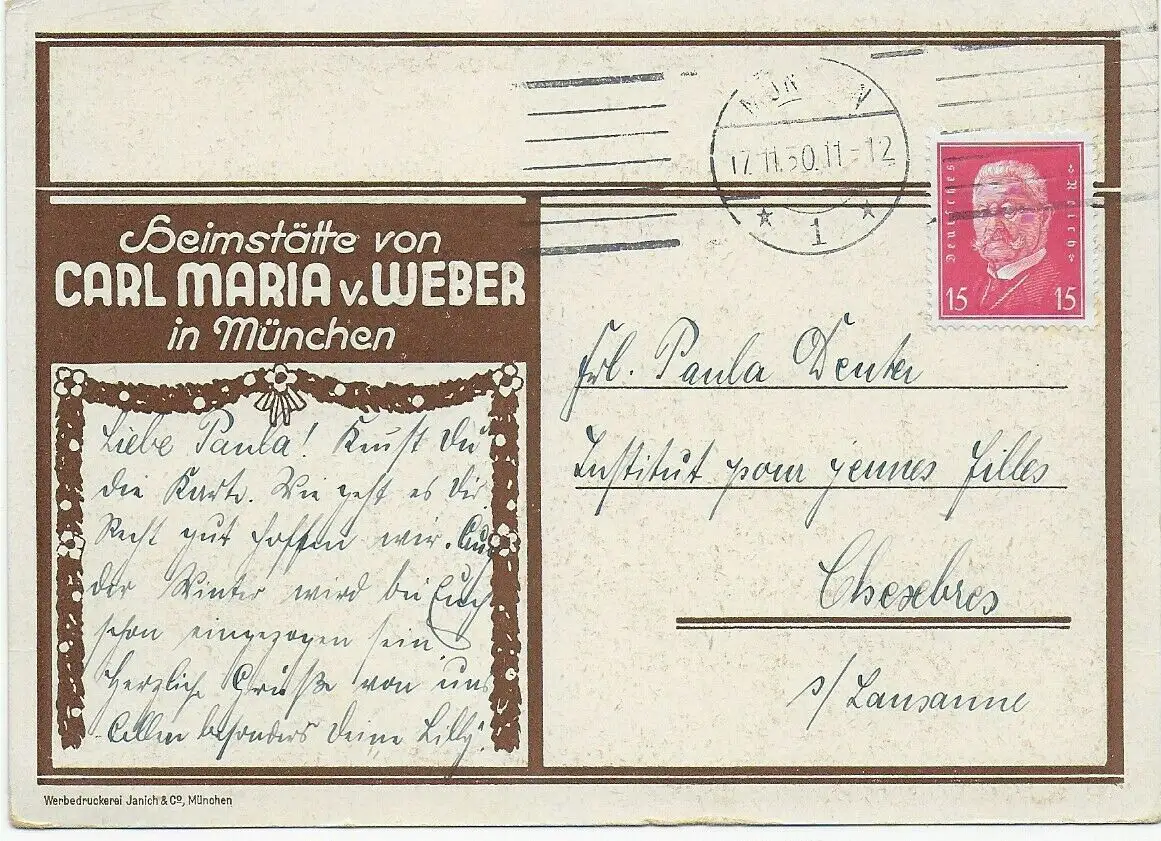 MÜN N
17.11.30.11-12
1
Deutsches Reich
15 15
Heimstätte von
CARL MARIA v. WEBER
in München
Liebe Paula! Kennst Du
die Karte. Wie geht es Dir.
Recht gut hoffen wir.
der Winter wird bei Euch
schon eingezogen sein.
Herzliche Grüße von uns
Allen besonders Deine Lilly.
Frl. Paula
Institut pour jeunes filles
Chexebres
s/Lausanne
Werbedruckerei Janich & Co, München